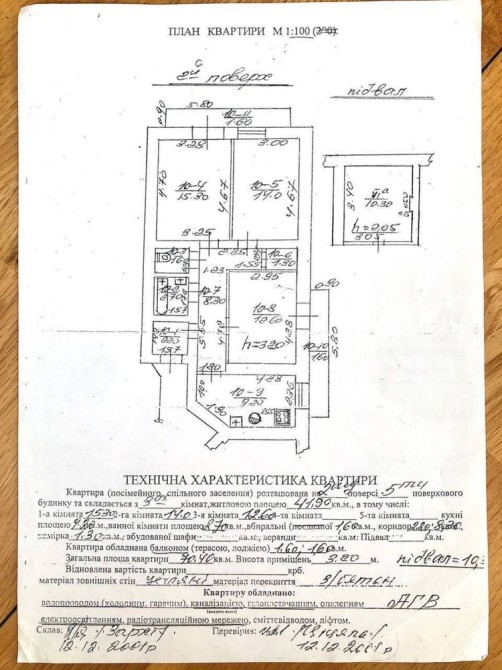 ПЛАН КВАРТИРИ М 1:100 (200)
2ий поверх
підвал
5.80
0.90
10-11
1.60
3.28
3.00
4.70
10-4
15.30
4.67
10-5
14.0
4.67
3.40
VIа
10.30
h=2.05
3.05
3.25
2.85
10-3
10-6
1.30
1.23
1.55
2.95
10-7
8.30
1.57
10-8
12.60
4.28
h=3.20
0.90
10-10
1.60
5.80
10-1
2.20
1.37
5.55
1.20
4.28
10-9
9.30
1.90
ТЕХНІЧНА ХАРАКТЕРИСТИКА КВАРТИРИ
Квартира (посімейного, спільного заселення) розташована на 2му поверсі 5ти поверхового
будинку та складається з 3ох кімнат, житловою площею 41,90 кв.м, в тому числі:
1-а кімната 15.30 2-га кімната 14.0 3-я кімната 12.60 4-та кімната 5-та кімната кухні
площею 9.30 кв.м., ванної кімнати площею 2.70 кв.м., вбиральні 1.60 кв.м., коридор 2.20; 8.30
комірка 1.30 кв.м., вбудованої шафи кв.м., веранди кв.м. Підвал кв.м.
Квартира обладнана балконом (терасою, лоджією) 1.60; 1.60 кв.м.
Загальна площа квартири 70.40 кв.м. Висота приміщень 3.20 м. підвал=10,3
Відновлена вартість квартири крб.
матеріал зовнішніх стін цегляні матеріал перекриття з/бетон
Квартиру обладнано:
водопроводом (холодним, гарячим), каналізацією, газопостачанням, опаленням АГВ
електроосвітленням, радіотрансляційною мережею, сміттєвідводом, ліфтом.
Склав: Перевірив:
12.12.2001р 12.12.2001р